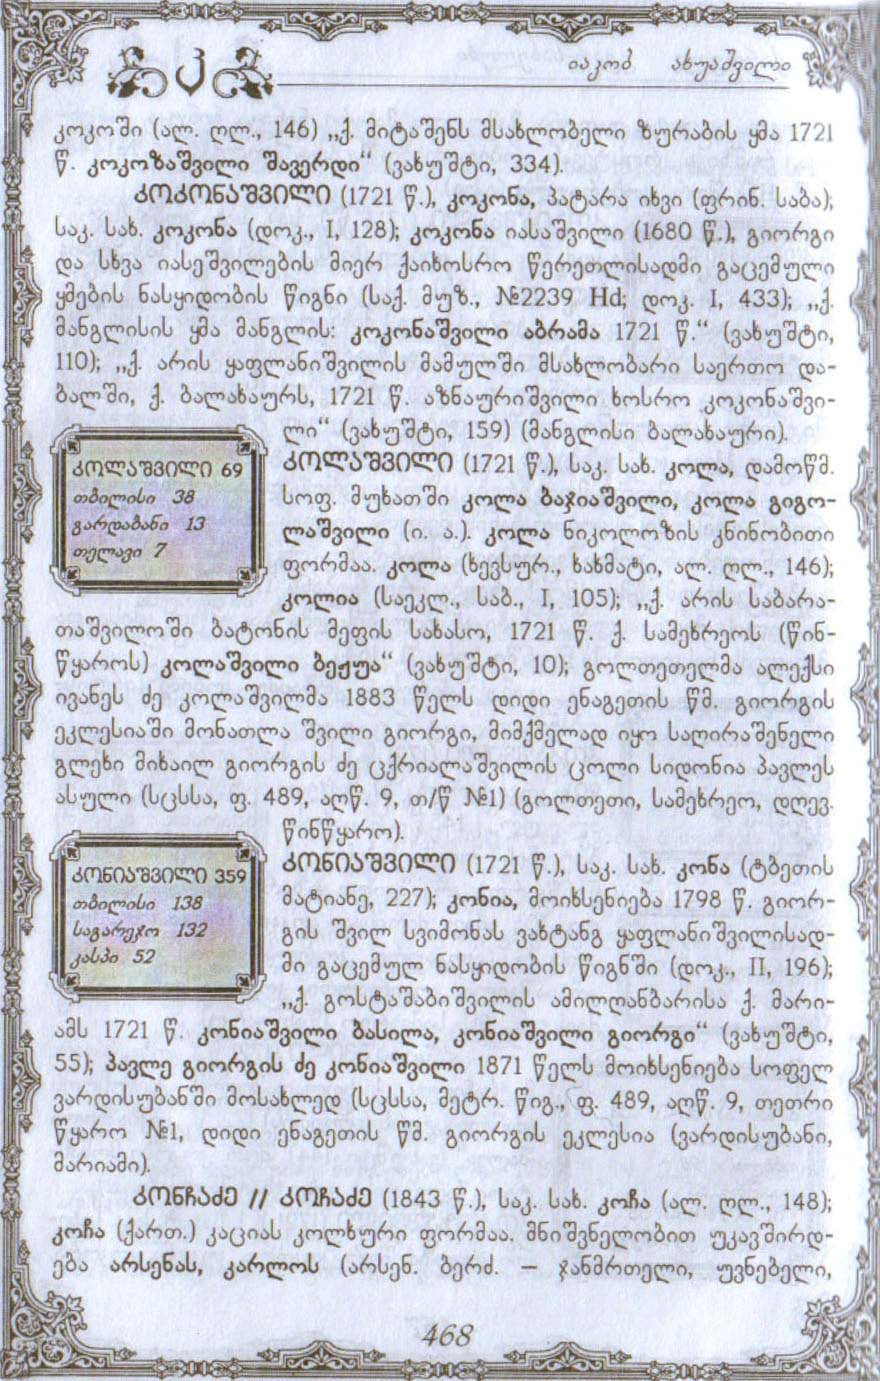 კ
იაკობ ახუაშვილი
კოკოში (ალ. ღლ., 146) „ქ. მიტაშენს მსახლობელი ზურაბის ყმა 1721
წ. კოკოზაშვილი შავერდი“ (ვახუშტი, 334).
კოკონაშვილი (1721 წ.), კოკონა, პატარა იხვი (ფრინ. საბა);
საკ. სახ. კოკონა (დოკ., I, 128); კოკონა იასაშვილი (1680 წ.), გიორგი
და სხვა იასეშვილების მიერ ქაიხოსრო წერეთლისადმი გაცემული
ყმების ნასყიდობის წიგნი (საქ. მუზ., №2239 Hd; დოკ. I, 433); „ქ.
მანგლისის ყმა მანგლის: კოკონაშვილი აბრამა 1721 წ.“ (ვახუშტი,
110); „ქ. არის ყაფლანიშვილის მამულში მსახლობარი საერთო და-
ბალში, ქ. ბალახაურს, 1721 წ. აზნაურიშვილი ხოსრო კოკონაშვი-
ლი“ (ვახუშტი, 159) (მანგლისი ბალახაური).
კოლაშვილი 69
თბილისი 38
გარდაბანი 13
თელავი 7
კოლაშვილი (1721 წ.), საკ. სახ. კოლა, დამოწმ.
სოფ. მუხათში კოლა ბაჯიაშვილი, კოლა გიგო-
ლაშვილი (ი. ა.). კოლა ნიკოლოზის კნინობითი
ფორმაა. კოლა (ხევსურ., ხახმატი, ალ. ღლ., 146);
კოლია (საეკლ., საბ., I, 105); „ქ. არის საბარა-
თაშვილოში ბატონის მეფის სახასო, 1721 წ. ქ. სამეხრეოს (წინ-
წყაროს) კოლაშვილი ბეჟუა“ (ვახუშტი, 10); გოლთეთელმა ალექსი
ივანეს ძე კოლაშვილმა 1883 წელს დიდი ენაგეთის წმ. გიორგის
ეკლესიაში მონათლა შვილი გიორგი, მიმქმელად იყო საღირაშენელი
გლეხი მიხაილ გიორგის ძე ცქრიალაშვილის ცოლი სიდონია პავლეს
ასული (სცსსა, ფ. 489, აღწ. 9, თ/წ №1) (გოლთეთი, სამეხრეო, დღევ.
წინწყარო).
კონიაშვილი 359
თბილისი 138
საგარეჯო 132
კასპი 52
კონიაშვილი (1721 წ.), საკ. სახ. კონა (ტბეთის
მატიანე, 227); კონია, მოიხსენიება 1798 წ. გიორ-
გის შვილ სვიმონას ვახტანგ ყაფლანიშვილისად-
მი გაცემულ ნასყიდობის წიგნში (დოკ., II, 196);
„ქ. გოსტაშაბიშვილის ამილღანბარისა ქ. მარი-
ამს 1721 წ. კონიაშვილი ბასილა, კონიაშვილი გიორგი“ (ვახუშტი,
55); პავლე გიორგის ძე კონიაშვილი 1871 წელს მოიხსენიება სოფელ
ვარდისუბანში მოსახლედ (სცსსა, მეტრ. წიგ., ფ. 489, აღწ. 9, თეთრი
წყარო №1, დიდი ენაგეთის წმ. გიორგის ეკლესია (ვარდისუბანი,
მარიამი).
კონჩაძე // კოჩაძე (1843 წ.), საკ. სახ. კოჩა (ალ. ღლ., 148);
კოჩა (ქართ.) კაციას კოლხური ფორმაა. მნიშვნელობით უკავშირდ-
ება არსენას, კარლოს (არსენ. ბერძ. – ჯანმრთელი, უვნებელი,
468